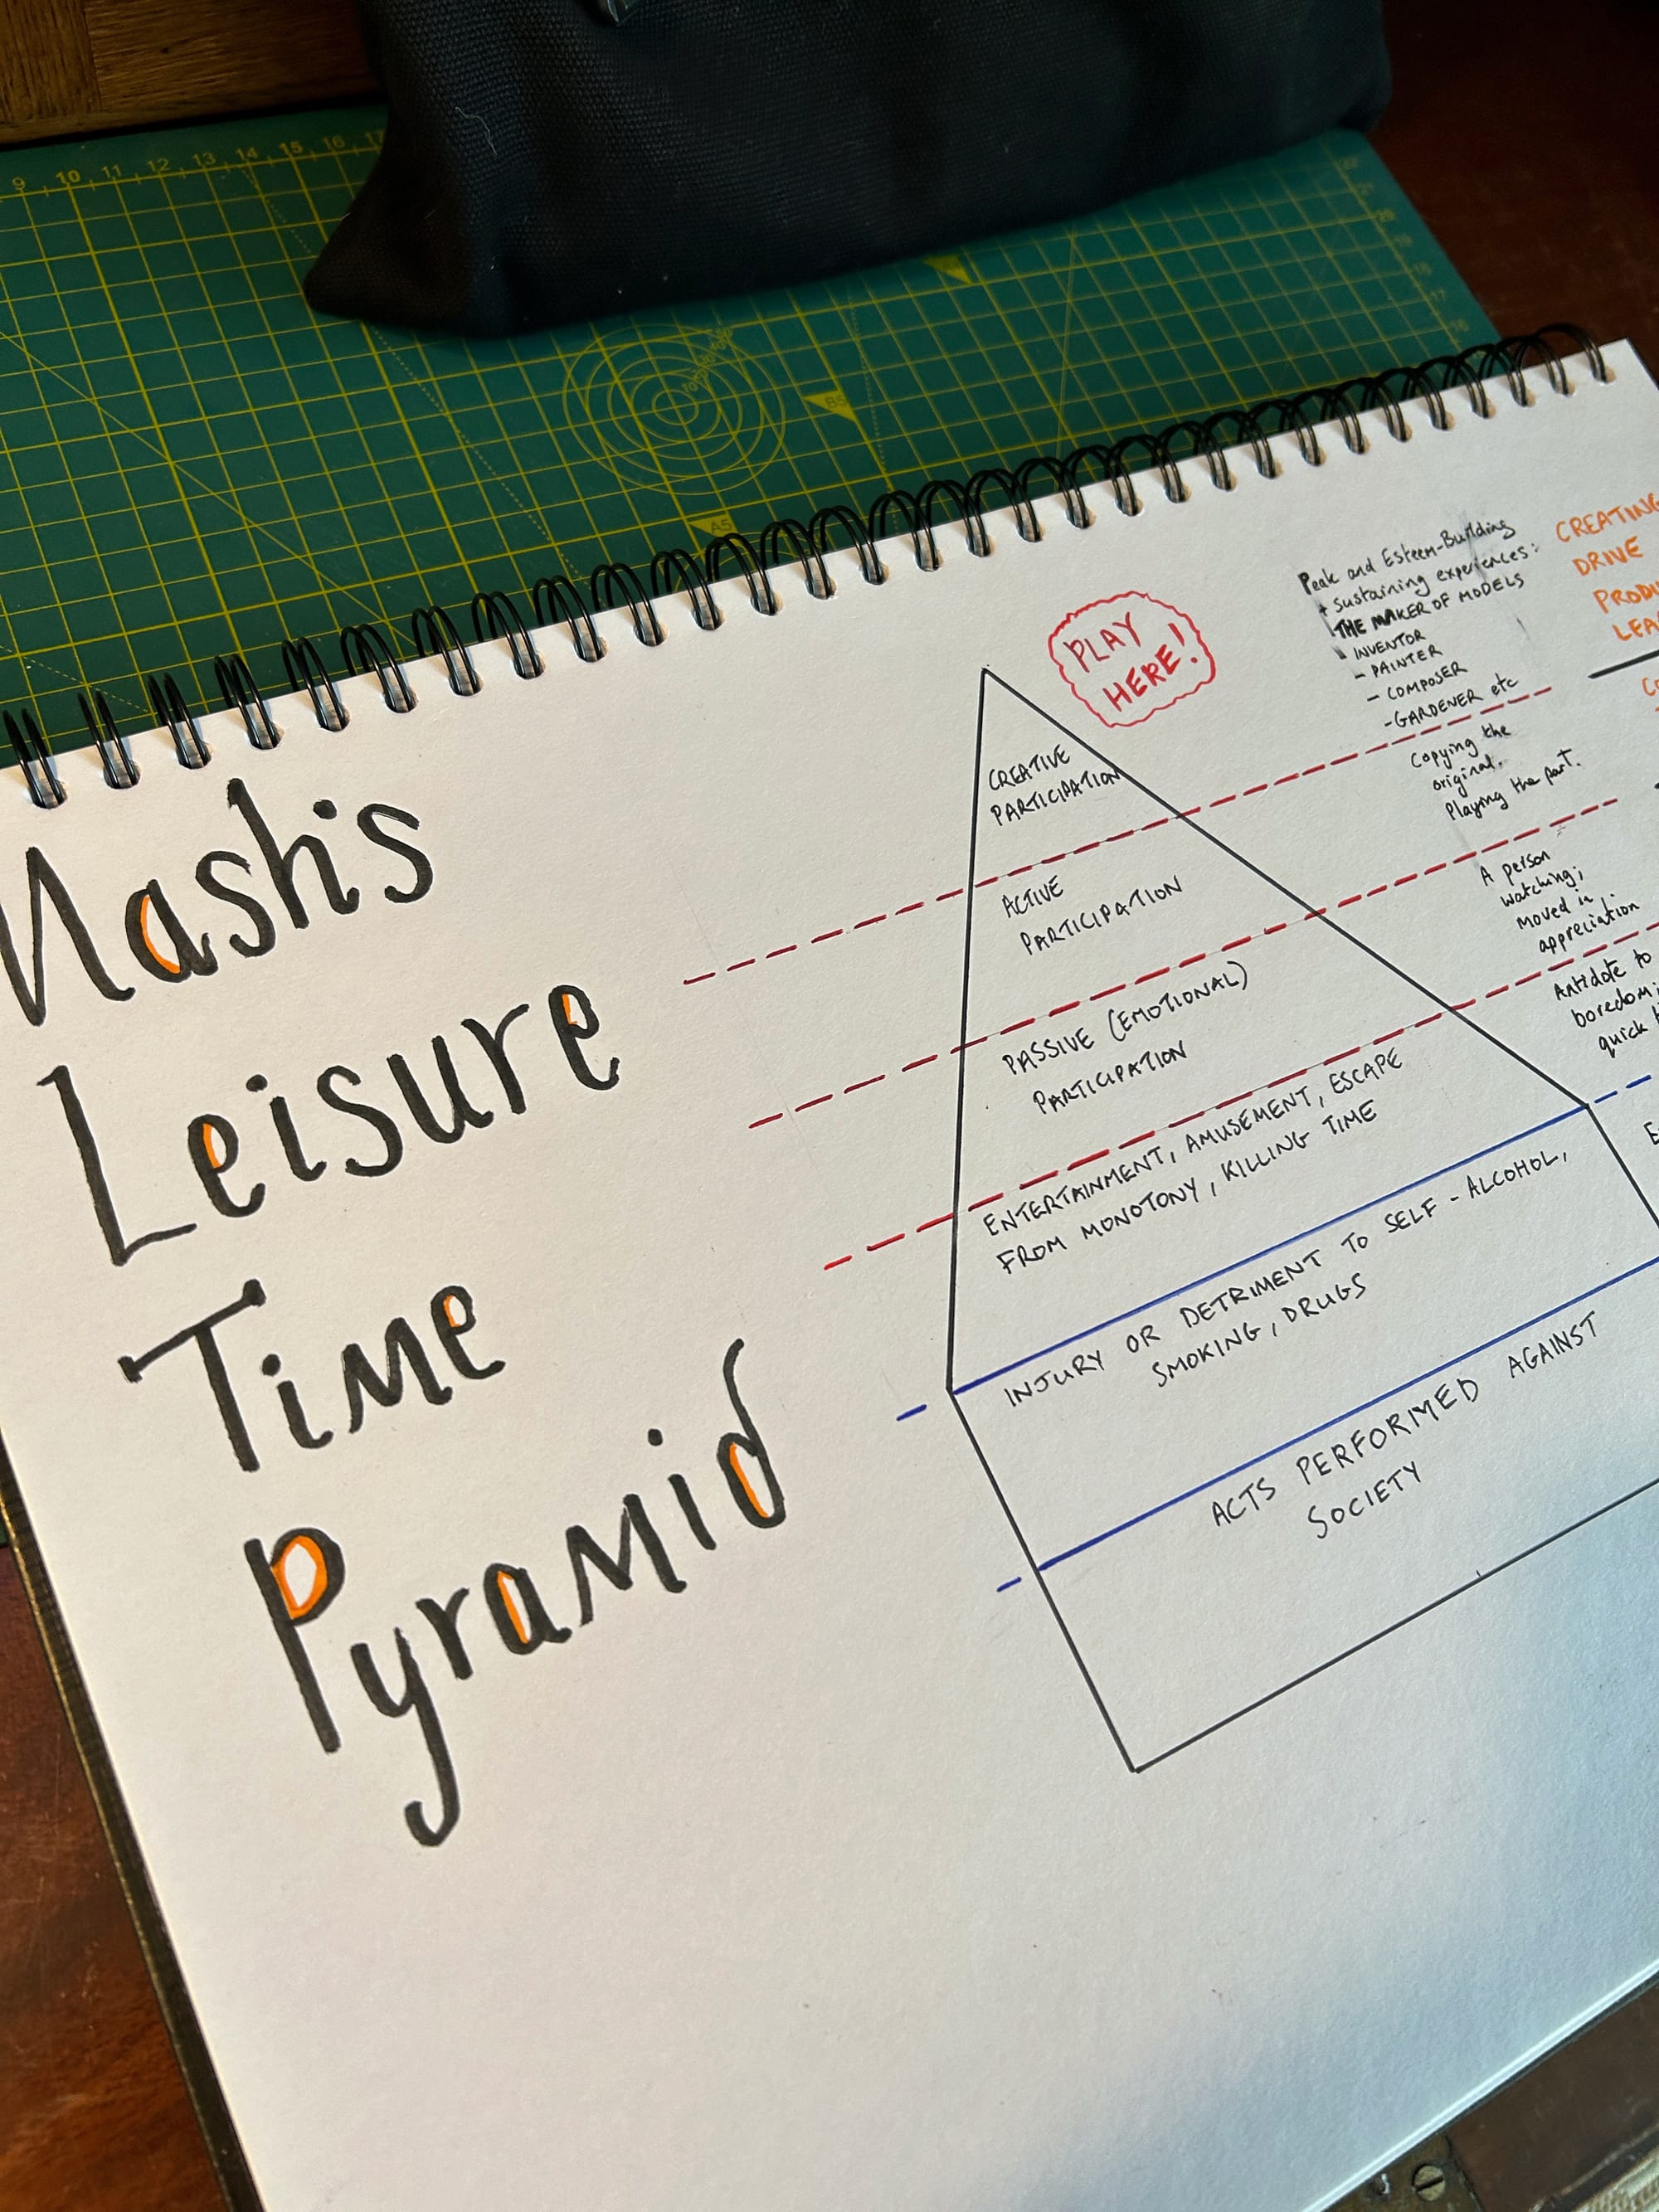 9 10 11 12 13 14 15 16 17
B5
A5
Nash's
Leisure
Time
Pyramid
PLAY
HERE!
CREATIVE
PARTICIPATION
ACTIVE
PARTICIPATION
PASSIVE (EMOTIONAL)
PARTICIPATION
ENTERTAINMENT, AMUSEMENT, ESCAPE
FROM MONOTONY, KILLING TIME
INJURY OR DETRIMENT TO SELF - ALCOHOL,
SMOKING, DRUGS
ACTS PERFORMED AGAINST
SOCIETY
Peak and Esteem-Building
+ sustaining experiences:
THE MAKER OF MODELS
INVENTOR
- PAINTER
- COMPOSER
- GARDENER etc
Copying the
original.
Playing the part.
A person
watching;
moved in
appreciation
Antidote to
boredom;
quick
CREATING
DRIVE